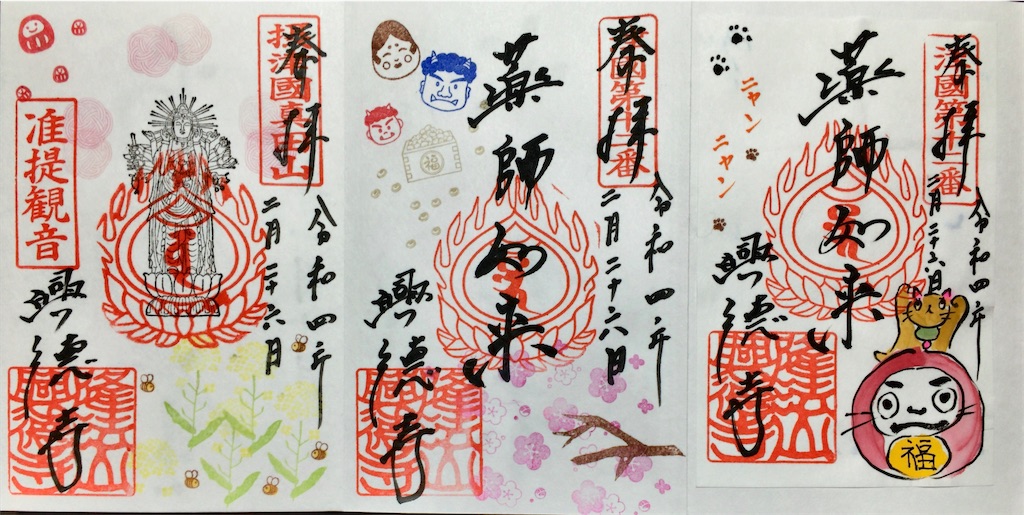 奉拝
摂津國真田山
令和四年
二月二十六日
准提観音
興徳寺
奉拝
令和四年
二月二十六日
薬師如来
興徳寺
福
奉拝
令和四年
二月二十六日
薬師如来
興徳寺
ニャン
ニャン
福